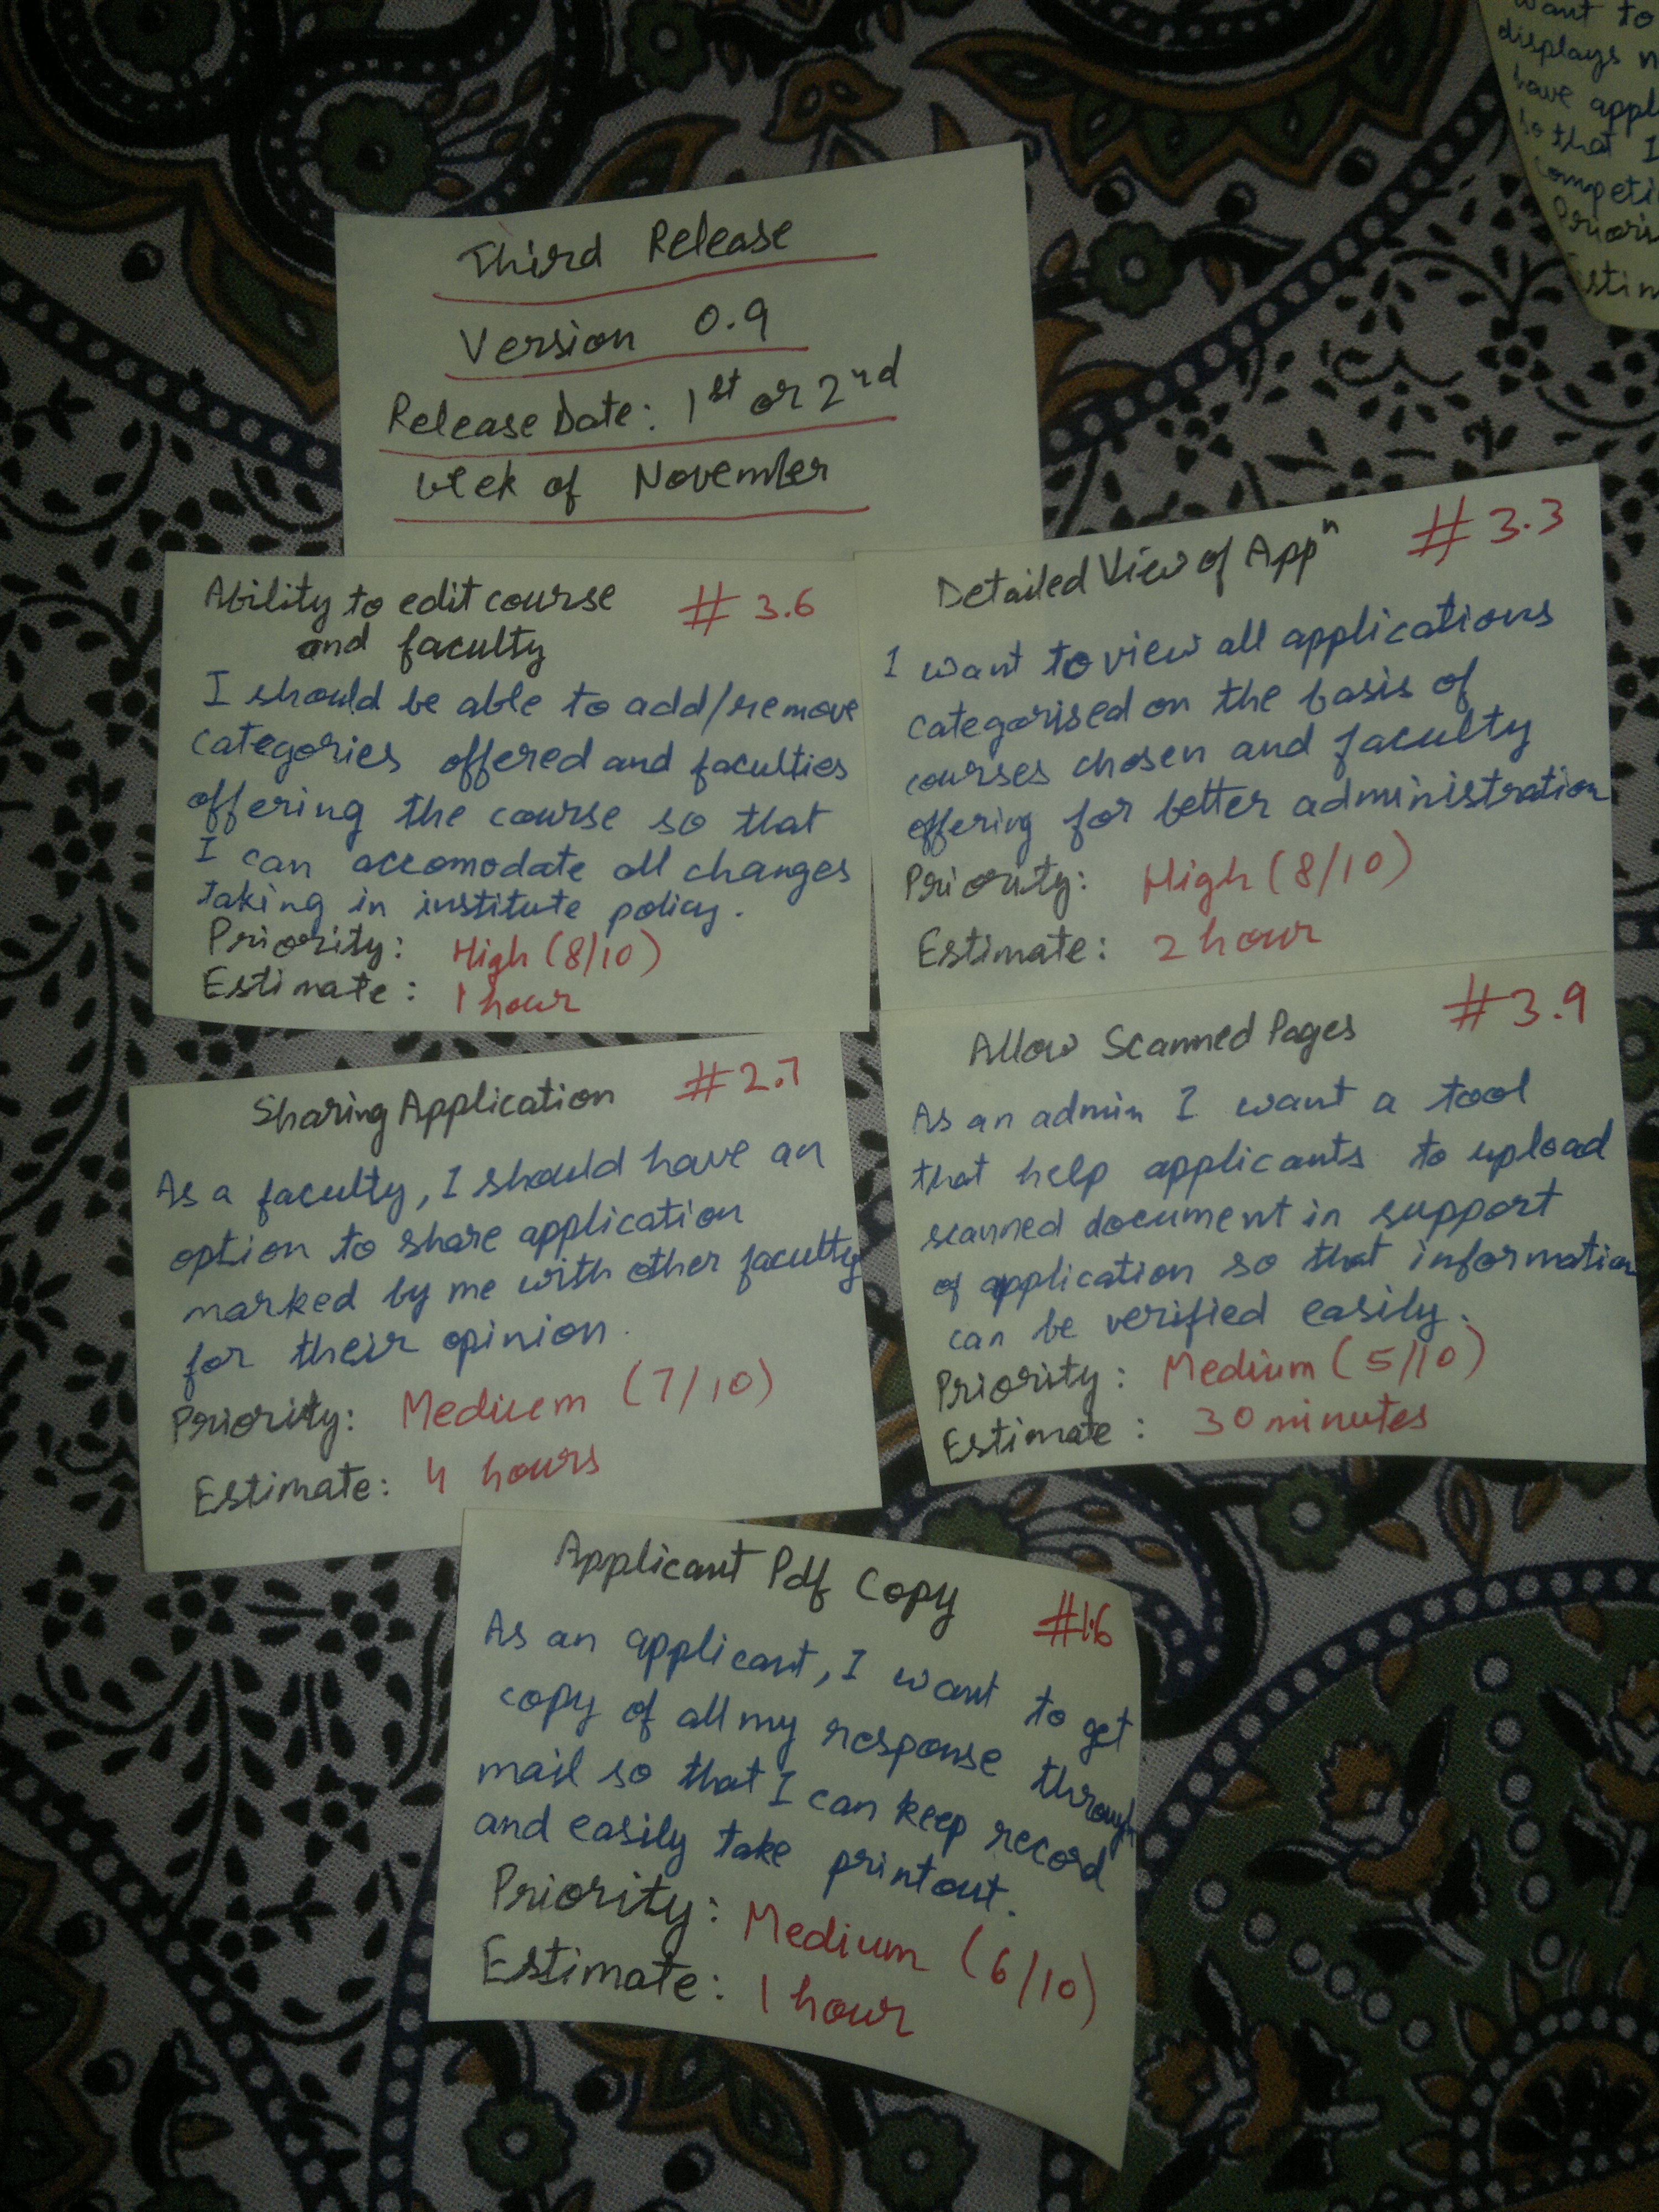 Third Release
Version 0.9
Release Date: 1st or 2nd
week of November
Ability to edit course #3.6
and faculty
I should be able to add/remove
categories offered and faculties
offering the course so that
I can accomodate all changes
taking in institute policy.
Priority: High (8/10)
Estimate: 1 hour
Detailed View of Appn #3.3
I want to view all applications
categorised on the basis of
courses chosen and faculty
offering for better administration
Priority: High (8/10)
Estimate: 2 hour
Sharing Application #2.7
As a faculty, I should have an
option to share application
marked by me with other faculty
for their opinion.
Priority: Medium (7/10)
Estimate: 4 hours
Allow Scanned Pages #3.9
As an admin I want a tool
that help applicants to upload
scanned document in support
of application so that information
can be verified easily.
Priority: Medium (5/10)
Estimate: 30 minutes
Applicant Pdf Copy #1.6
As an applicant, I want to get
copy of all my response through
mail so that I can keep record
and easily take printout.
Priority: Medium (6/10)
Estimate: 1 hour
want to
displays
have appl
so that I
competi
Priori
Estim